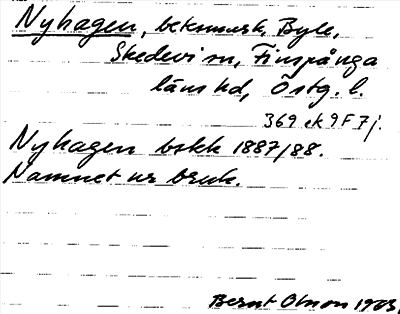 Nyhagen, beksmark, Byle,
Skedevi sn, Finspånga
läns hd, Östg. l.
369 ek 9 F 7 j.
Nyhagen bskk 1887/88.
Namnet ur bruk.
Bernt Olsson